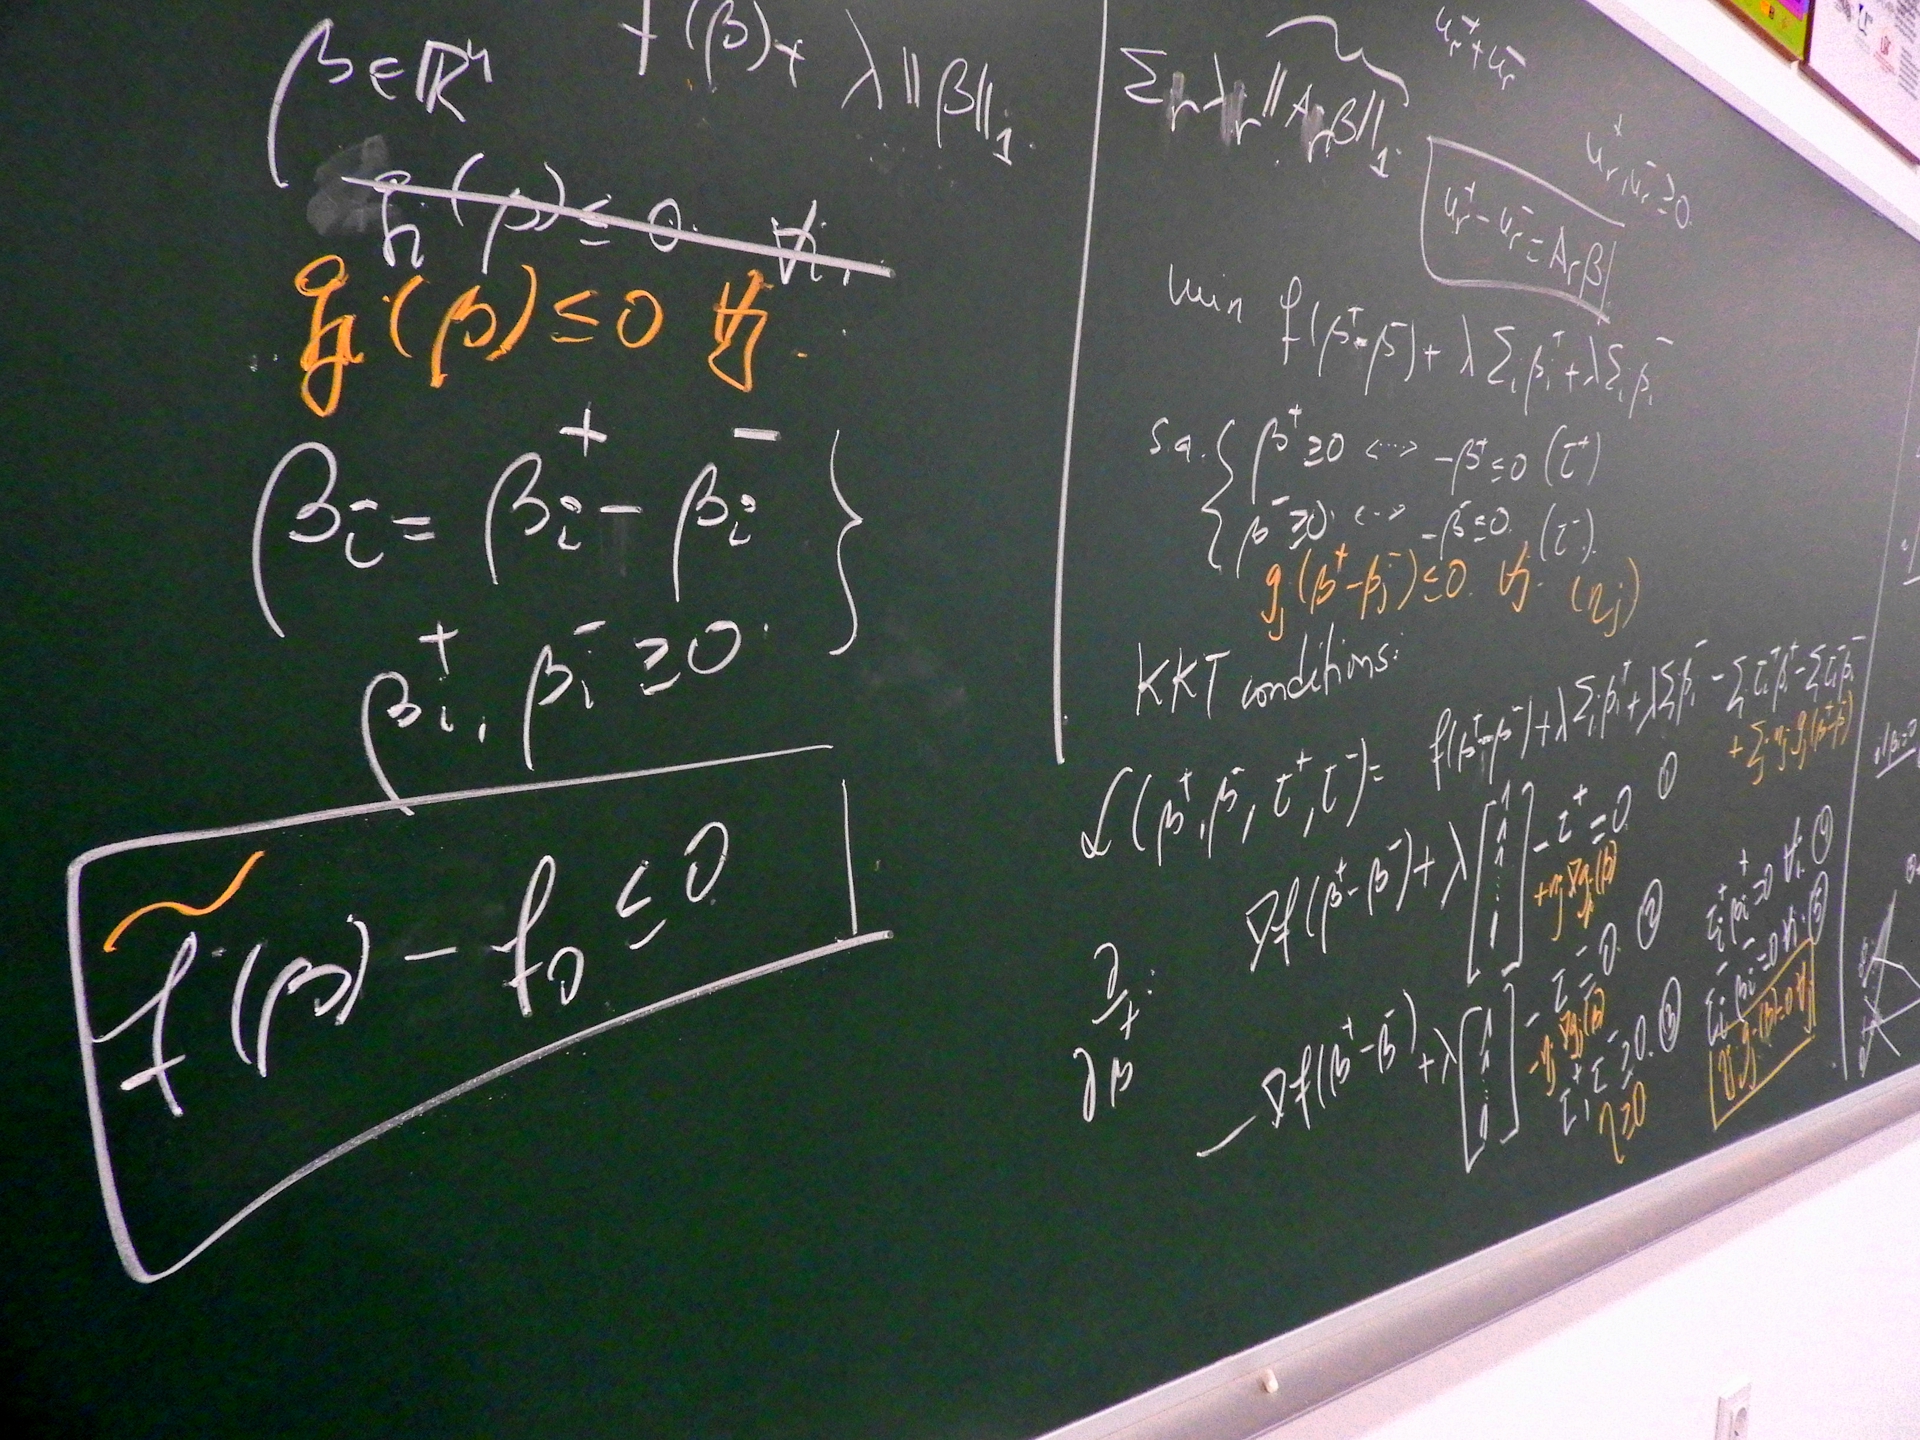 β ∈ ℝⁿ f(β) + λ‖β‖₁
h(β) ≤ 0 ∀i
gⱼ(β) ≤ 0 ∀j.
βᵢ = βᵢ⁺ - βᵢ⁻ }
βᵢ⁺, βᵢ⁻ ≥ 0.
f(β) - f₀ ≤ 0
Σᵣ λᵣ ‖Aᵣβ‖₁
uᵣ⁺ + uᵣ⁻
uᵣ⁺, uᵣ⁻ ≥ 0.
uᵣ⁺ - uᵣ⁻ = Aᵣβ
min f(β⁺ - β⁻) + λ Σᵢ βᵢ⁺ + λ Σᵢ βᵢ⁻
s.a. { β⁺ ≥ 0 <···> -β⁺ ≤ 0 (τ⁺)
β⁻ ≥ 0. <··> -β⁻ ≤ 0. (τ⁻).
gⱼ(β⁺ - βⱼ⁻) ≤ 0. ∀j. (ηⱼ)
KKT conditions:
ℒ(β⁺, β⁻, τ⁺, τ⁻) = f(β⁺ - β⁻) + λ Σᵢ βᵢ⁺ + λ Σ βᵢ⁻ - Σ τᵢ⁺ βᵢ⁺ - Σ τᵢ⁻ βᵢ⁻
+ Σⱼ ηⱼ gⱼ(β⁺ - β⁻)
∂/∂β⁺:
∇f(β⁺ - β⁻) + λ [1 1 1 ⋮ 1] - τ⁺ = 0 ①
+ηⱼ ∇gⱼ(β)
-∇f(β⁺ - β⁻) + λ [1 1 ⋮ 1] - τ⁻ = 0. ②
-ηⱼ ∇gⱼ(β)
τ⁺, τ⁻ ≥ 0. ③
η ≥ 0
τᵢ⁺ βᵢ⁺ = 0 ∀i
τᵢ⁻ βᵢ⁻ = 0 ∀i. ⑤
ηⱼ gⱼ(β) = 0 ∀j